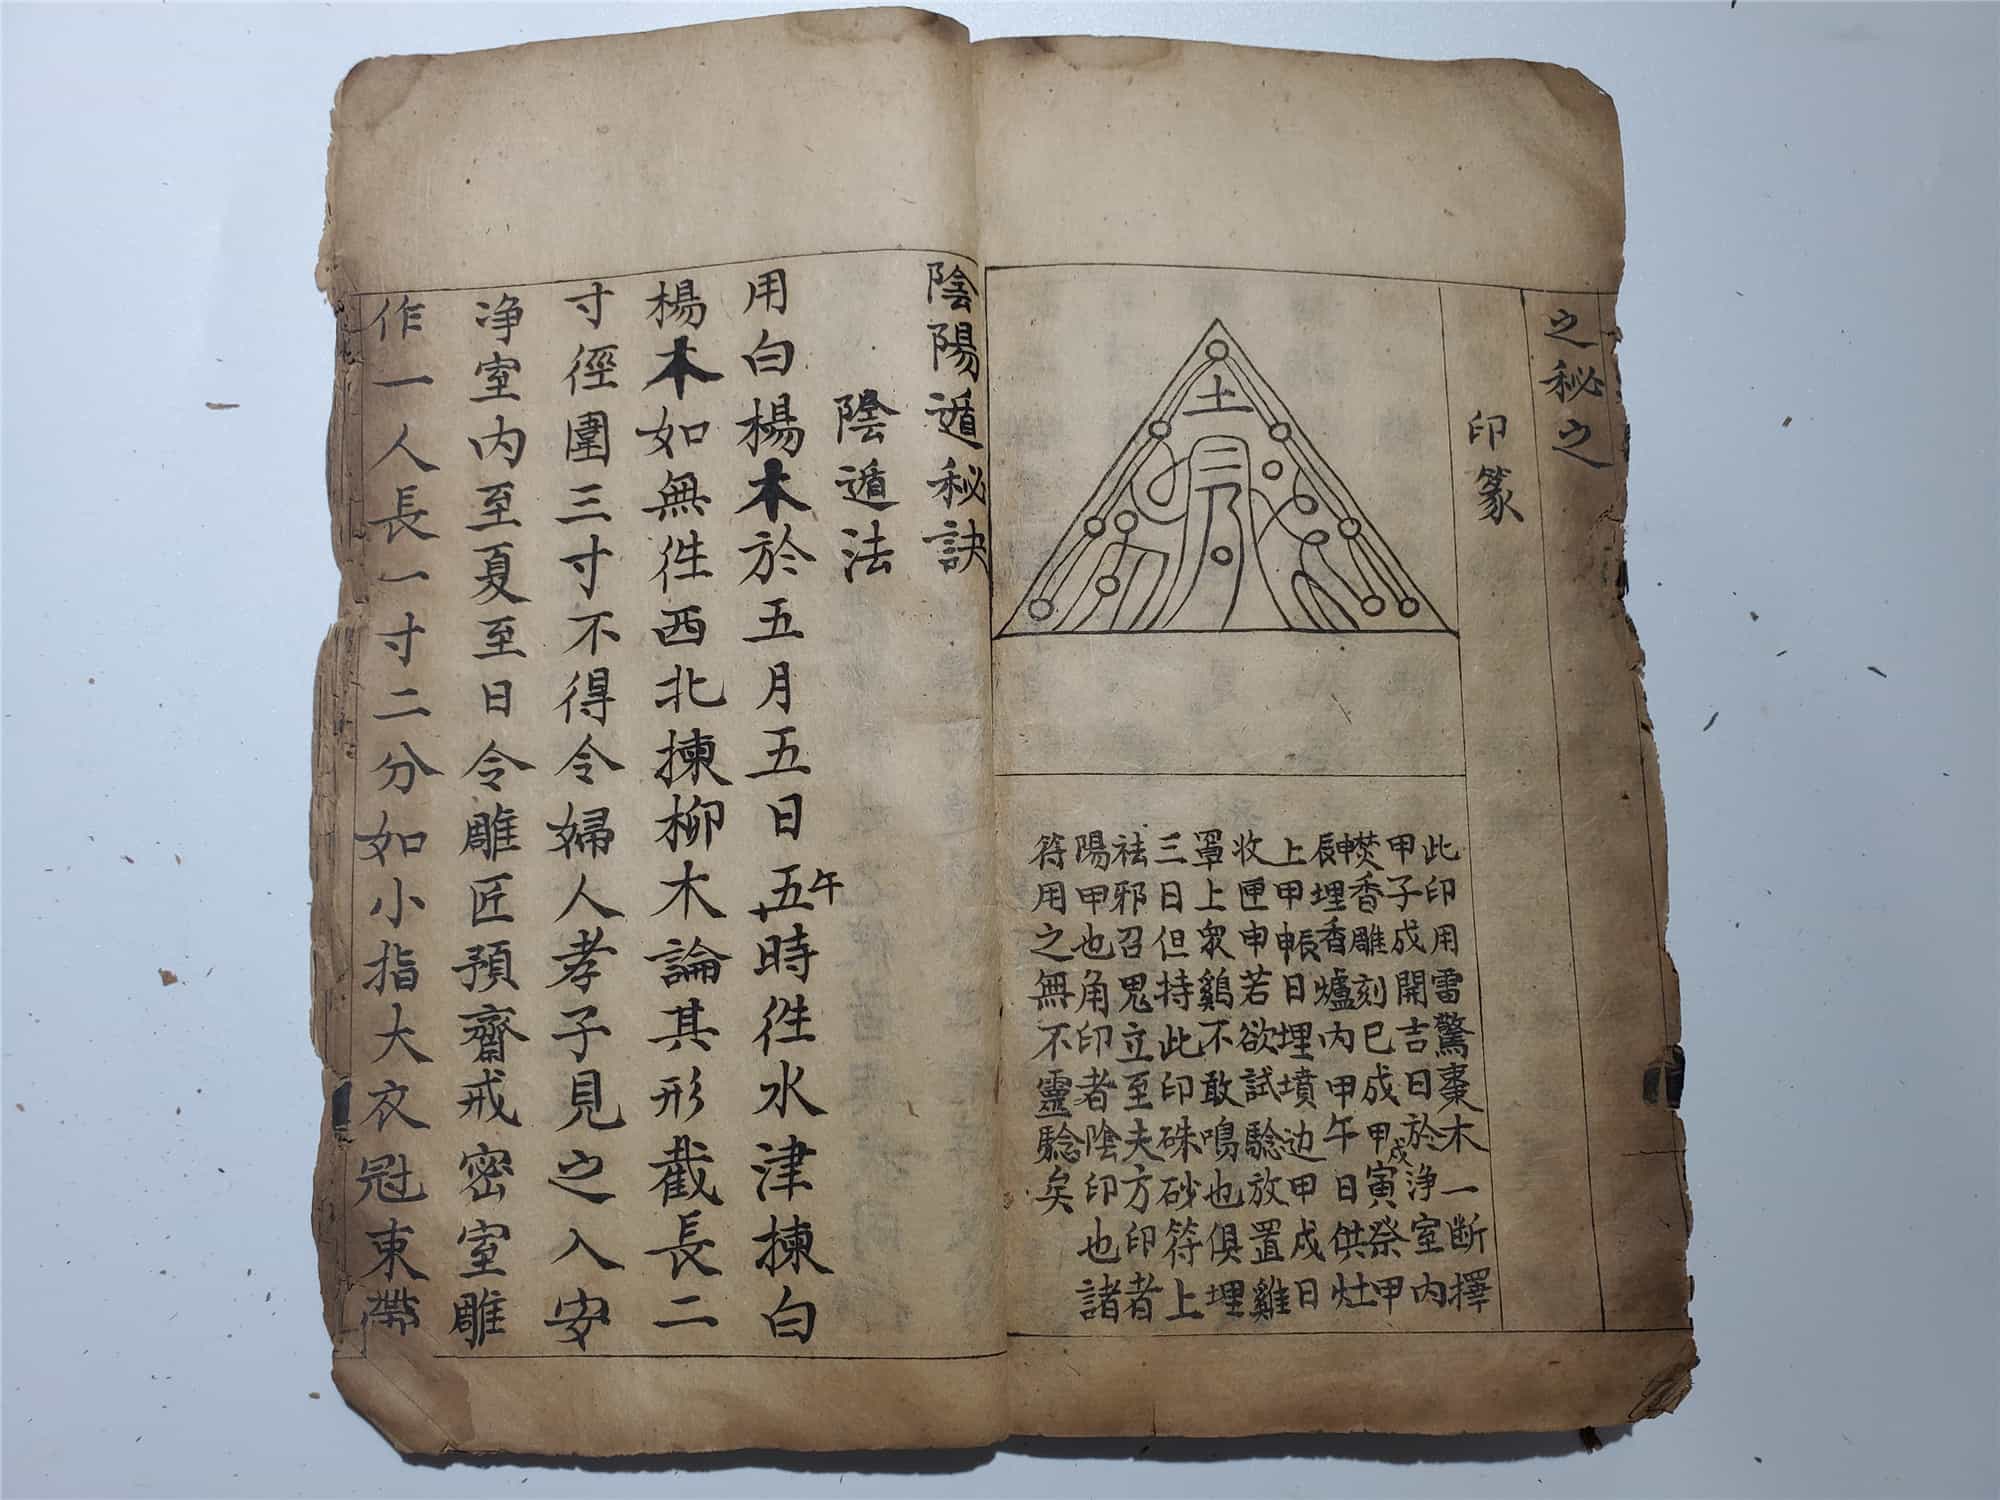 之秘之
印篆
土
此印用雷驚棗木一断擇
甲子成開吉日於浄室内
焚香雕刻巳成甲戌寅祭甲
申辰埋香爐内甲午日供灶
上甲申辰日埋墳边甲戌日
收匣申若欲試騐放置雞
罩上衆鷄不敢鳴也俱埋
三日但持此印硃砂符上
祛邪召鬼立至夫方印者
陽甲也角印者陰印也諸
符用之無不靈騐矣
陰陽遁秘訣
陰遁法
用白楊木於五月五日五午時徃水津揀白
楊木如無徃西北揀柳木論其形截長二
寸徑圍三寸不得令婦人孝子見之入安
浄室内至夏至日令雕匠預齋戒密室雕
作一人長一寸二分如小指大衣冠束帶